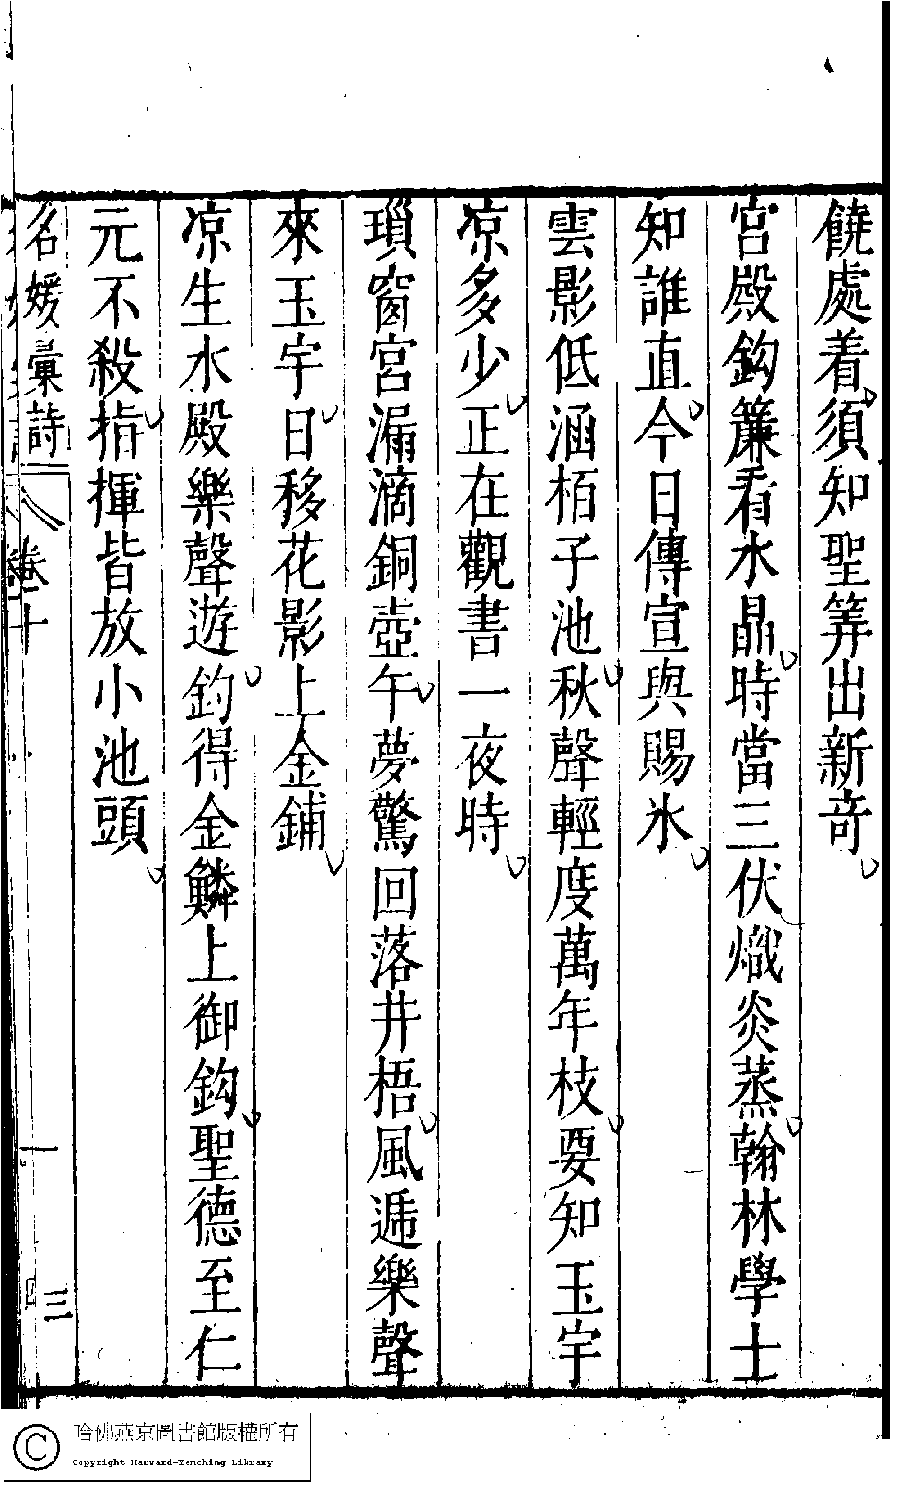 饒處着須知聖筭出新竒
宮殿鈎簾看水晶時當三伏熾炎蒸翰林學士
知誰直今日傳宣與賜氷
雲影低涵栢子池秋聲輕度萬年枝要知玉宇
凉多少正在觀書一夜時
瑣窗宮漏滴銅壺午夢驚回落井梧風遞樂聲
來玉宇日移花影上金鋪
凉生水殿樂聲遊釣得金鱗上御鈎聖德至仁
元不殺指揮皆放小池頭
名媛彙詩
卷十
三
哈佛燕京圖書館版權所有
Copyright Harvard-Yenching Library